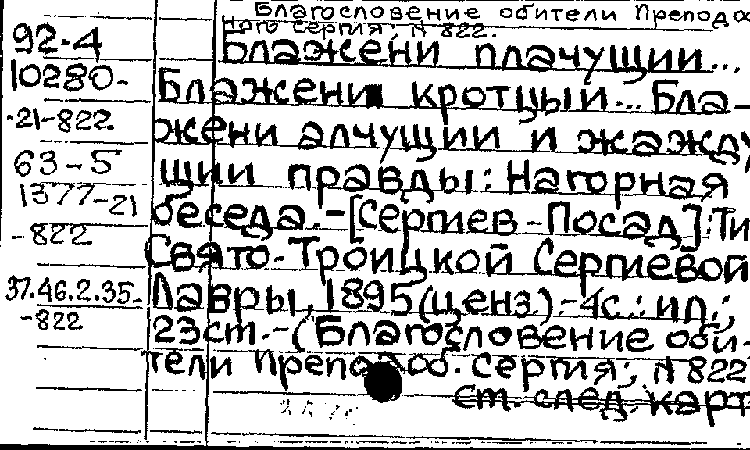 Благословение обители Препод
ного Сергия; N 822.
92-4
Блажени плачущии...
10280-
Блажени кротцыи... Бла-
-21-822.
жени алчущии и жажду
63-5
щии правды: Нагорная
1377-21
беседа.-[Сергиев-Посад]: Ти
-822
Свято-Троицкой Сергиевой
37.46.2.35-
Лавры, 1895 (ценз).-4с.: ил.;
-822
23см.-(Благословение оби-
тели Препод об. Сергия; N 822
См. след. карт